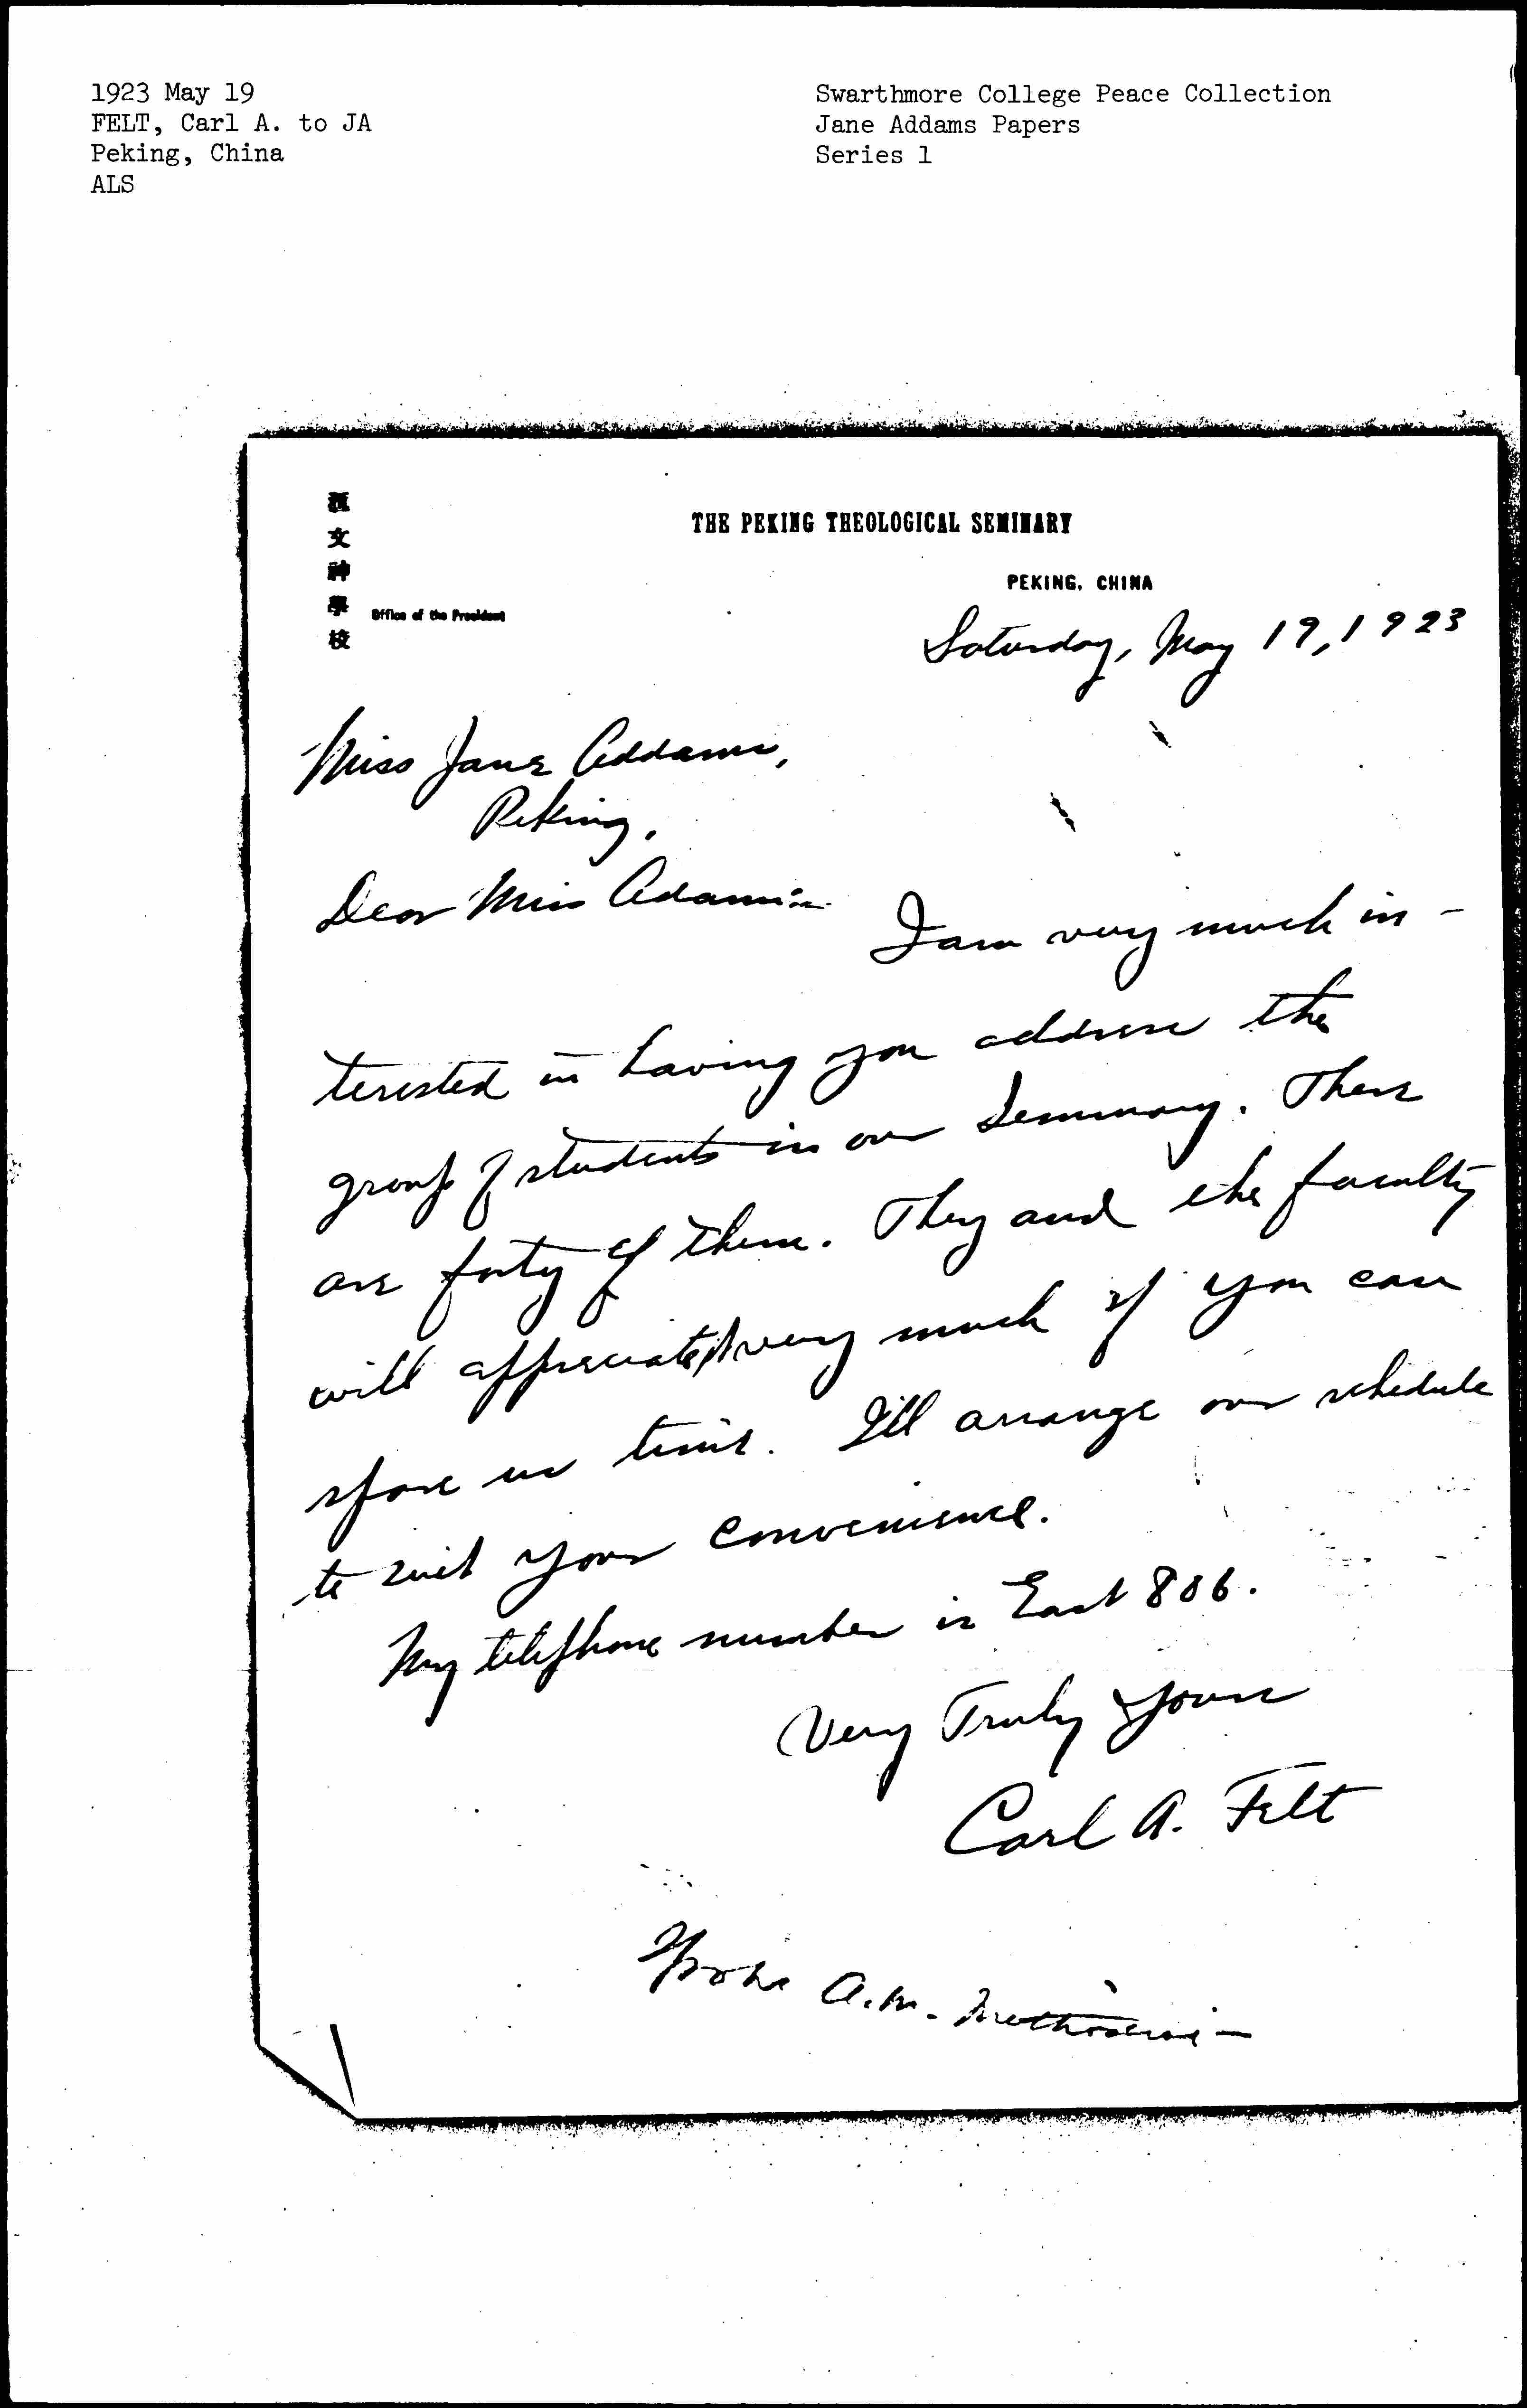 1923 May 19
FELT, Carl A. to JA
Peking, China
ALS
Swarthmore College Peace Collection
Jane Addams Papers
Series 1
匯文神學校
Office of the President
THE PEKING THEOLOGICAL SEMINARY
PEKING, CHINA
Saturday, May 19, 1923
Miss Jane Addams,
Peking.
Dear Miss Adams:-
I am very much in-
terested in having you address the
group of students in our Seminary. There
are forty of them. They and the faculty
will appreciate it very much if you can
spare us time. I'll arrange our schedule
to suit your convenience.
My telephone number is East 806.
Very Truly Yours
Carl A. Felt
A.M.